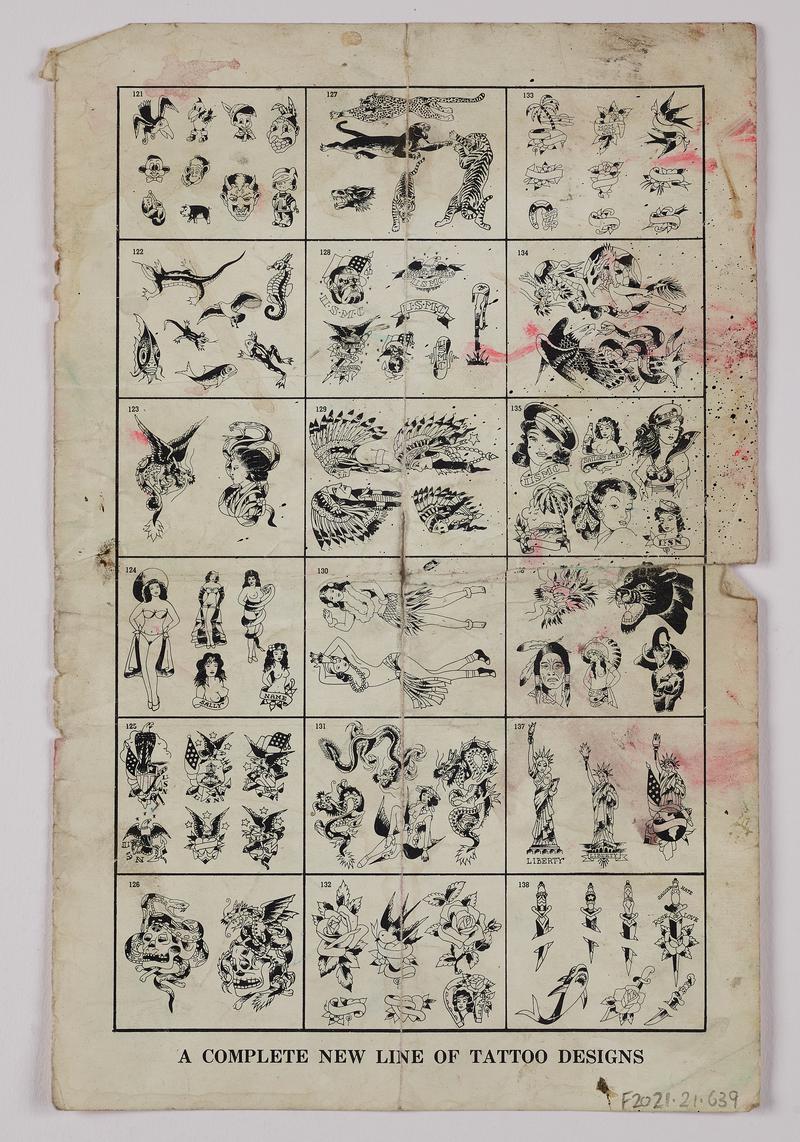 121
127
133
122
128
134
U·S·M·C
USMC
U·S·M·C
123
129
135
USMC
USN
124
130
SALLY
NAME
125
131
137
USN
LIBERTY
LIBERTY
126
132
138
DEATH
LOVE
A COMPLETE NEW LINE OF TATTOO DESIGNS
F2021.21.639